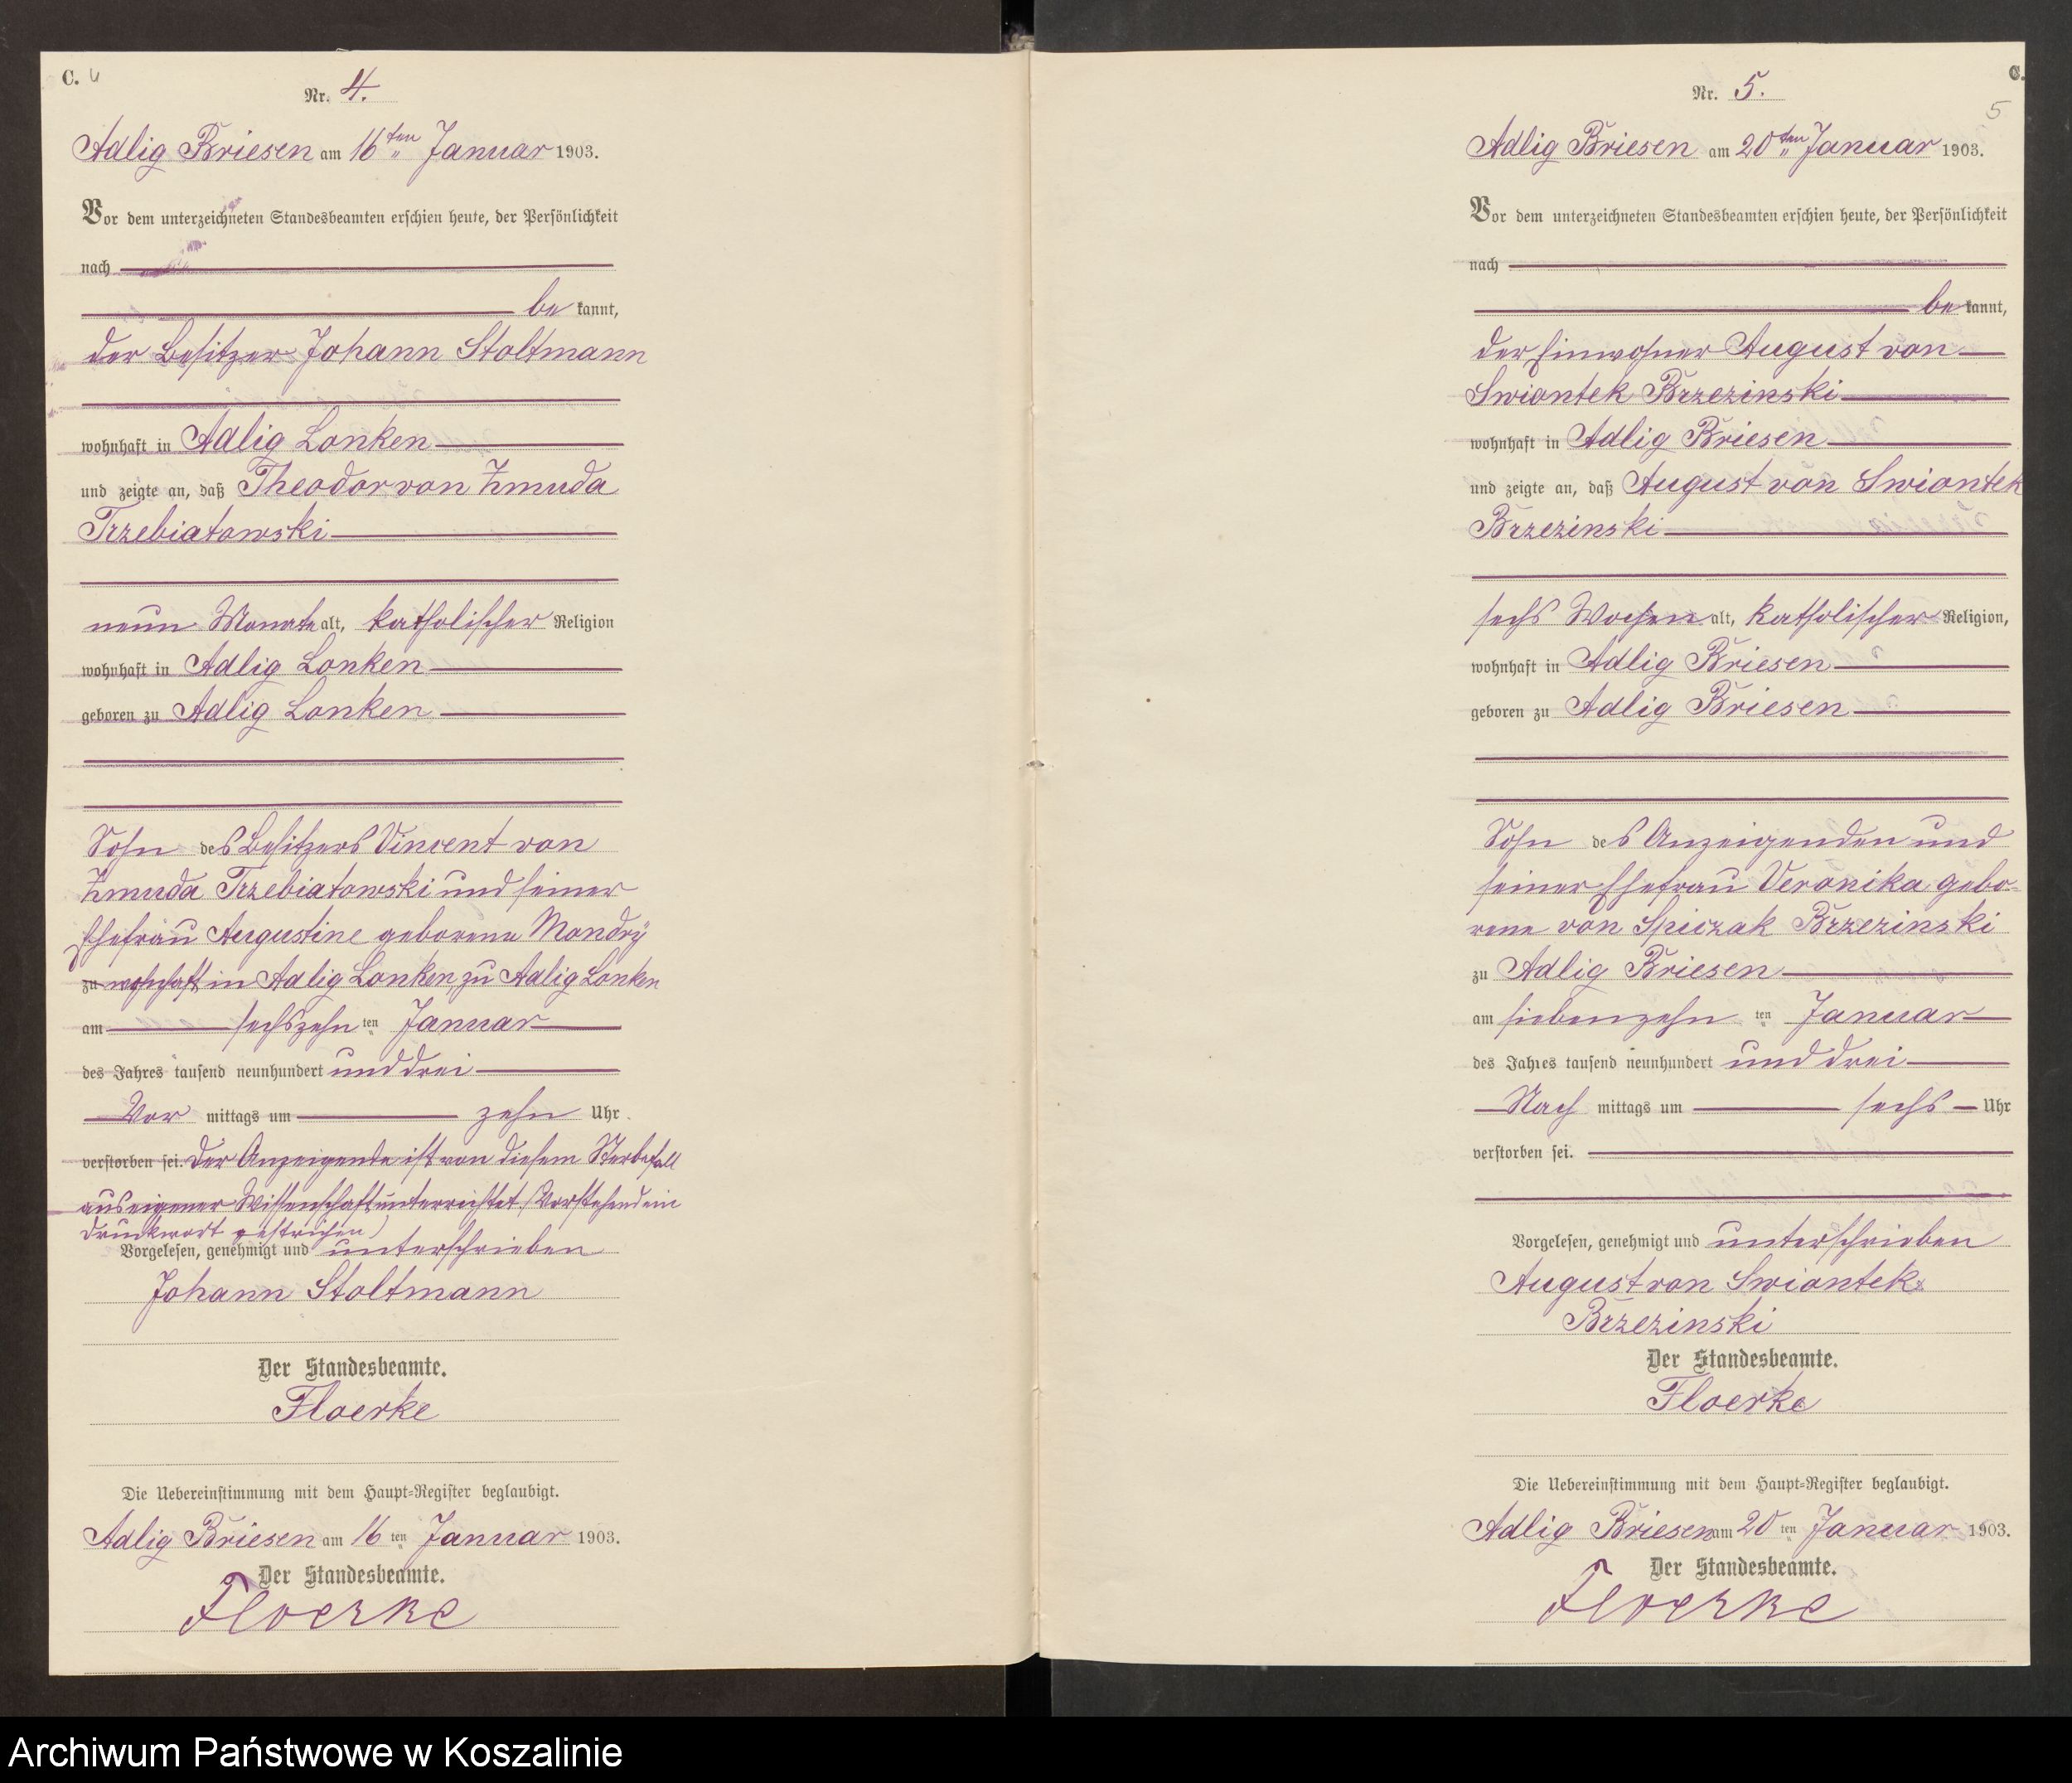 C. 4
Nr. 4.
Adlig Briesen am 16ten Januar 1903.
Vor dem unterzeichneten Standesbeamten erschien heute, der Persönlichkeit
nach
be kannt,
der Besitzer Johann Stoltmann
wohnhaft in Adlig Lonken
und zeigte an, daß Theodor von Zmuda
Trzebiatowski
neun Monate alt, katholischer Religion
wohnhaft in Adlig Lonken
geboren zu Adlig Lonken
Sohn des Besitzers Vincent von
Zmuda Trzebiatowski und seiner
Ehefrau Augustine geborene Mondry
zu wohnhaft in Adlig Lonken, zu Adlig Lonken
am sechszehn ten Januar
des Jahres tausend neunhundert und drei
Vor mittags um zehn Uhr
verstorben sei. Der Anzeigende ist von diesem Sterbefall
aus eigener Wissenschaft unterrichtet. (Vorstehend ein
Druckwort gestrichen)
Vorgelesen, genehmigt und unterschrieben
Johann Stoltmann
Der Standesbeamte.
Floerke
Die Uebereinstimmung mit dem Haupt-Register beglaubigt.
Adlig Briesen am 16 ten Januar 1903.
Der Standesbeamte.
Floerke
C.
5
Nr. 5.
Adlig Briesen am 20ten Januar 1903.
Vor dem unterzeichneten Standesbeamten erschien heute, der Persönlichkeit
nach
be kannt,
der Einwohner August von
Swiontek Brzezinski
wohnhaft in Adlig Briesen
und zeigte an, daß August von Swiontek
Brzezinski
sechs Wochen alt, katholischer Religion,
wohnhaft in Adlig Briesen
geboren zu Adlig Briesen
Sohn des Anzeigenden und
seiner Ehefrau Veronika gebo-
rene von Spiczak Brzezinski
zu Adlig Briesen
am siebenzehn ten Januar
des Jahres tausend neunhundert und drei
Nach mittags um sechs Uhr
verstorben sei.
Vorgelesen, genehmigt und unterschrieben
August von Swiontek
Brzezinski
Der Standesbeamte.
Floerke
Die Uebereinstimmung mit dem Haupt-Register beglaubigt.
Adlig Briesen am 20 ten Januar 1903.
Der Standesbeamte.
Floerke
Archiwum Państwowe w Koszalinie